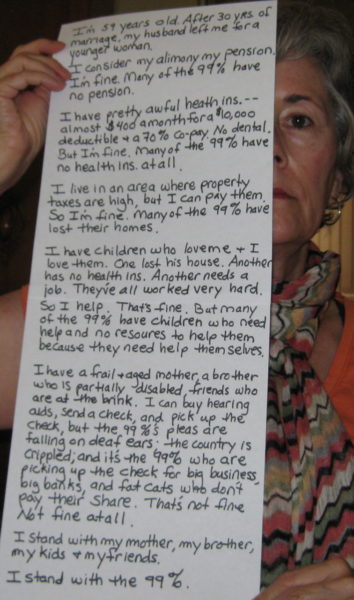 I'm 59 years old. After 30 yrs. of
marriage, my husband left me for a
younger woman.
I consider my alimony my pension.
I'm fine. Many of the 99% have
no pension.
I have pretty awful heath ins. --
almost $400 amonth for a $10,000
deductible & a 70% co-pay. No dental.
But I'm fine. Many of the 99% have
no health ins. at all.
I live in an area where property
taxes are high, but I can pay them.
So I'm fine. Many of the 99% have
lost their homes.
I have children who love me & I
love them. One lost his house. Another
has no health ins. Another needs a
job. They've all worked very hard.
So I help. That's fine. But many
of the 99% have children who need
help and no resoures to help them
because they need help them selves.
I have a frail & aged mother, a brother
who is partially disabled, friends who
are at the brink. I can buy hearing
aids, send a check, and pick up the
check, but the 99%'s pleas are
falling on deaf ears: the country is
crippled; and it's the 99% who are
picking up the check for big business,
big banks, and fat cats who don't
pay their share. That's not fine
Not fine at all.
I stand with my mother, my brother,
my kids & my friends.
I stand with the 99%.